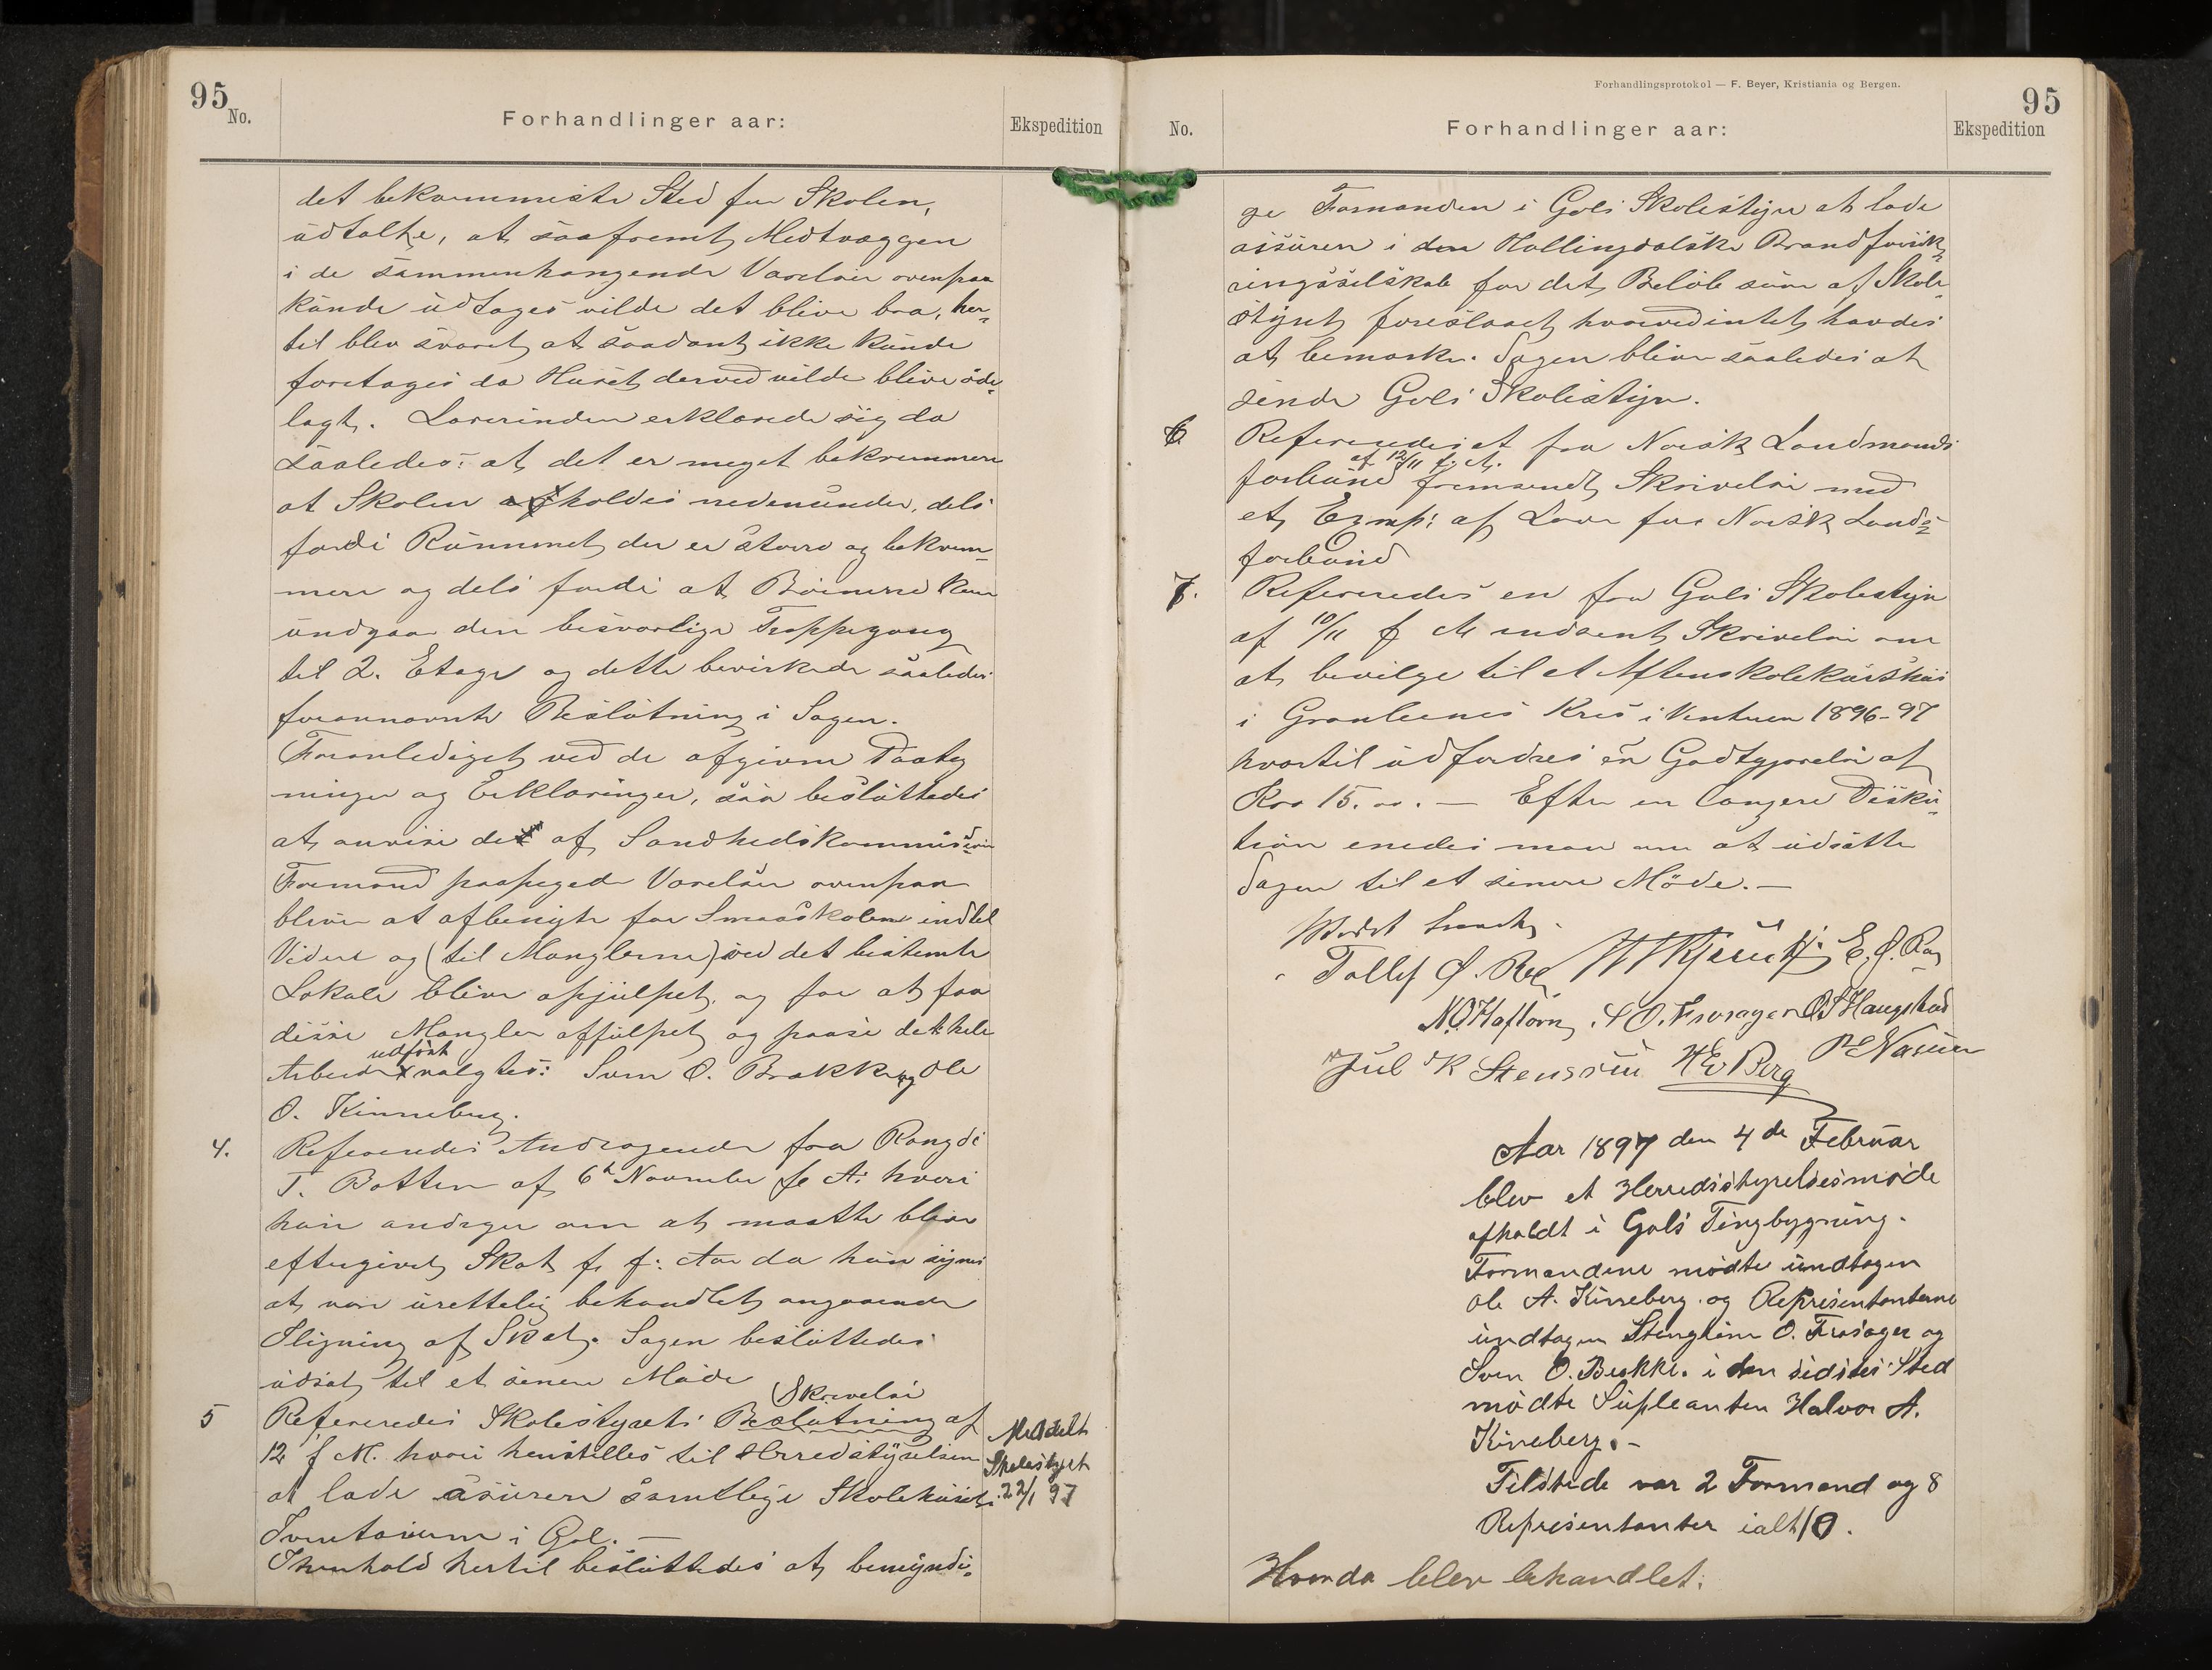 95
No.
Forhandlinger aar:
Ekspedition
det bekvemmeste Sted for Skolen,
udtalte, at saafremt Midtvæggen
i de sammenhængende Værelser ovenpaa
kunde udtages vilde det blive bra, her-
til blev svaret at saadant ikke kunde
foretages da Huset derved vilde blive øde-
lagt. Lærerinden erklærede sig da
saaledes: at det er meget bekvemmere
at Skolen holdes nedenunder, dels
fordi Rummet der er større og bekvem-
mere og dels fordi at Børnene kan
undgaa den besværlige Trappegang
til 2. Etage og dette bevirkede saaledes
forannævnte Beslutning i Sagen.
Foranlediget ved de afgivne Paateg
ninger og Erklæringer, saa besluttedes
at anvise det af Sundhedskommissions
Formand paapegede Værelser ovenpaa
bliver at afbenytte for Smaaskolen indtil
Videre og (til Manglerne) ved det bestemte
Lokale bliver afhjulpet, og for at faa
disse Mangler afhjulpet og paase det hele
udført
Arbeide valgtes: Sven O. Brekke og Ole
O. Kinneberg.
4. Refereredes Andragende fra Rangdi
T. Botten af 6te November f. A. hvori
hun andrager om at maatte blive
eftergivet Skat f. f. Aar da hun synes
at være urettelig behandlet angaaende
Ligning af Skat. Sagen besluttedes
udsat til et senere Møde
Skrivelse
5 Refereredes Skolestyrets Beslutning af
12 f. M. hvori henstilles til Herredstyrelsen
at lade assurere samtlige Skolehusets
Inventarium i Gol. —
I henhold hertil besluttedes at bemyndi-
Meddelt
Skolestyret
22/1 97
Forhandlingsprotokol — F. Beyer, Kristiania og Bergen.
95
No.
Forhandlinger aar:
Ekspedition
ge Formanden i Gols Skolestyre at lade
assurere i den Hallingdalske Brandforsik-
ringsselskab for det Beløb som af Skole-
styret foreslaaet hvorved intet havdes
at bemærke. Sagen bliver saaledes at
sende Gols Skolestyre.
6 Refereredes et fra Norsk Landmands
af 12/11 f. A.
forbund fremsendt Skrivelse med
et Exmp: af Love for Norsk Lands-
forbund
7. Refereredes en fra Gols Skolestyre
af 10/11 f A indsent Skrivelse om
at bevilge til et Aftenskolekursus
i Granheimes Kres i Vinteren 1896-97
hvortil udfordres en Godtgjørelse af
Kro 15.00. — Efter en længere Disku-
sion enedes man om at udsætte
Sagen til et senere Møde. —
Mødet
Tollef O. E. O.
N. O. Haftorn O. Frøsager O S Haugstad
Jul K Stensrud H E Berg
Aar 1897 den 4de Februar
blev et Herredsstyrelsesmøde
afholdt i Gols Tingbygning.
Formændene mødte undtagen
Ole A. Kinneberg og Representanterne
undtagen Stenghim O. Frøsager og
Sven O. Brekke. i den sidstes Sted
mødte Supleanten Halvor A.
Kinneberg. –
Tilstede var 2 Formænd og 8
Representanter ialt 10.
Hvorda blev behandlet: